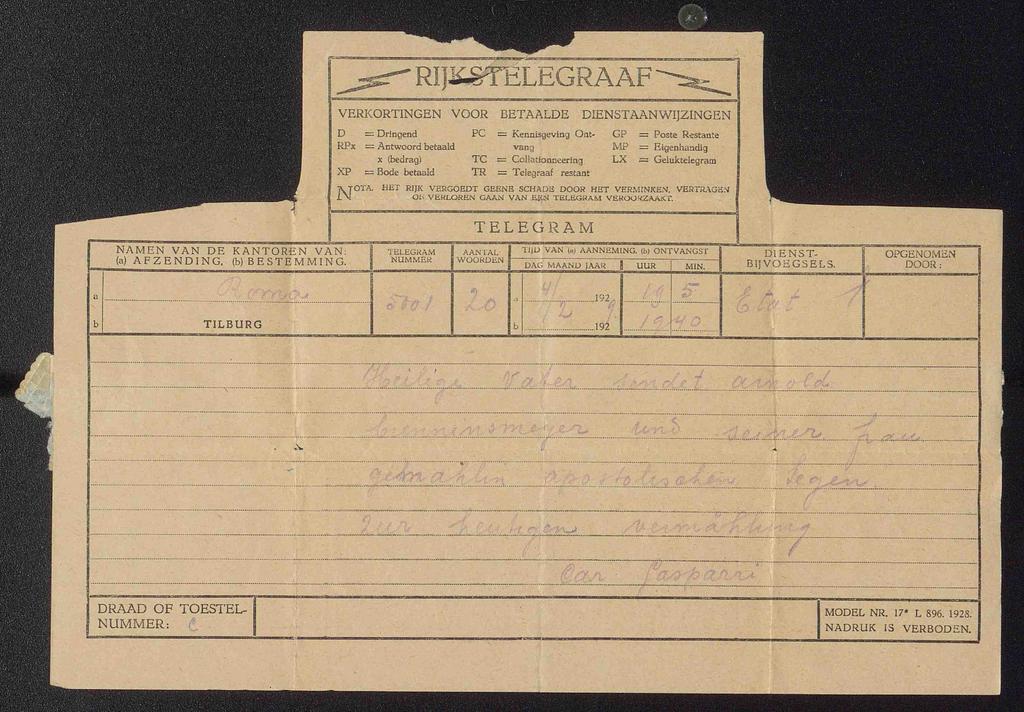 RIJKSTELEGRAAF
VERKORTINGEN VOOR BETAALDE DIENSTAANWIJZINGEN
D = Dringend
RPx = Antwoord betaald
x (bedrag)
XP = Bode betaald
PC = Kennisgeving Ont-
vangst
TC = Collationneering
TR = Telegraaf restant
GP = Poste Restante
MP = Eigenhandig
LX = Geluktelegram
NOTA. HET RIJK VERGOEDT GEENE SCHADE DOOR HET VERMINKEN, VERTRAGEN
OF VERLOREN GAAN VAN EEN TELEGRAM VEROORZAAKT.
TELEGRAM
NAMEN VAN DE KANTOREN VAN:
(a) AFZENDING, (b) BESTEMMING.
TELEGRAM
NUMMER
AANTAL
WOORDEN
TIJD VAN (a) AANNEMING, (b) ONTVANGST
DAG MAAND JAAR
UUR
MIN.
DIENST-
BIJVOEGSELS.
OPGENOMEN
DOOR:
a Roma 5001 20 a 4/2 1929 19 5 Etat
b TILBURG b 192 19 40
Heilige Vater sendet arnold
brennensmeyer und seiner frau
gemahlin apostolischen Segen
zur heutigen vermählung
Car Gasparri
DRAAD OF TOESTEL-
NUMMER: C
MODEL NR. 17* L 896. 1928.
NADRUK IS VERBODEN.